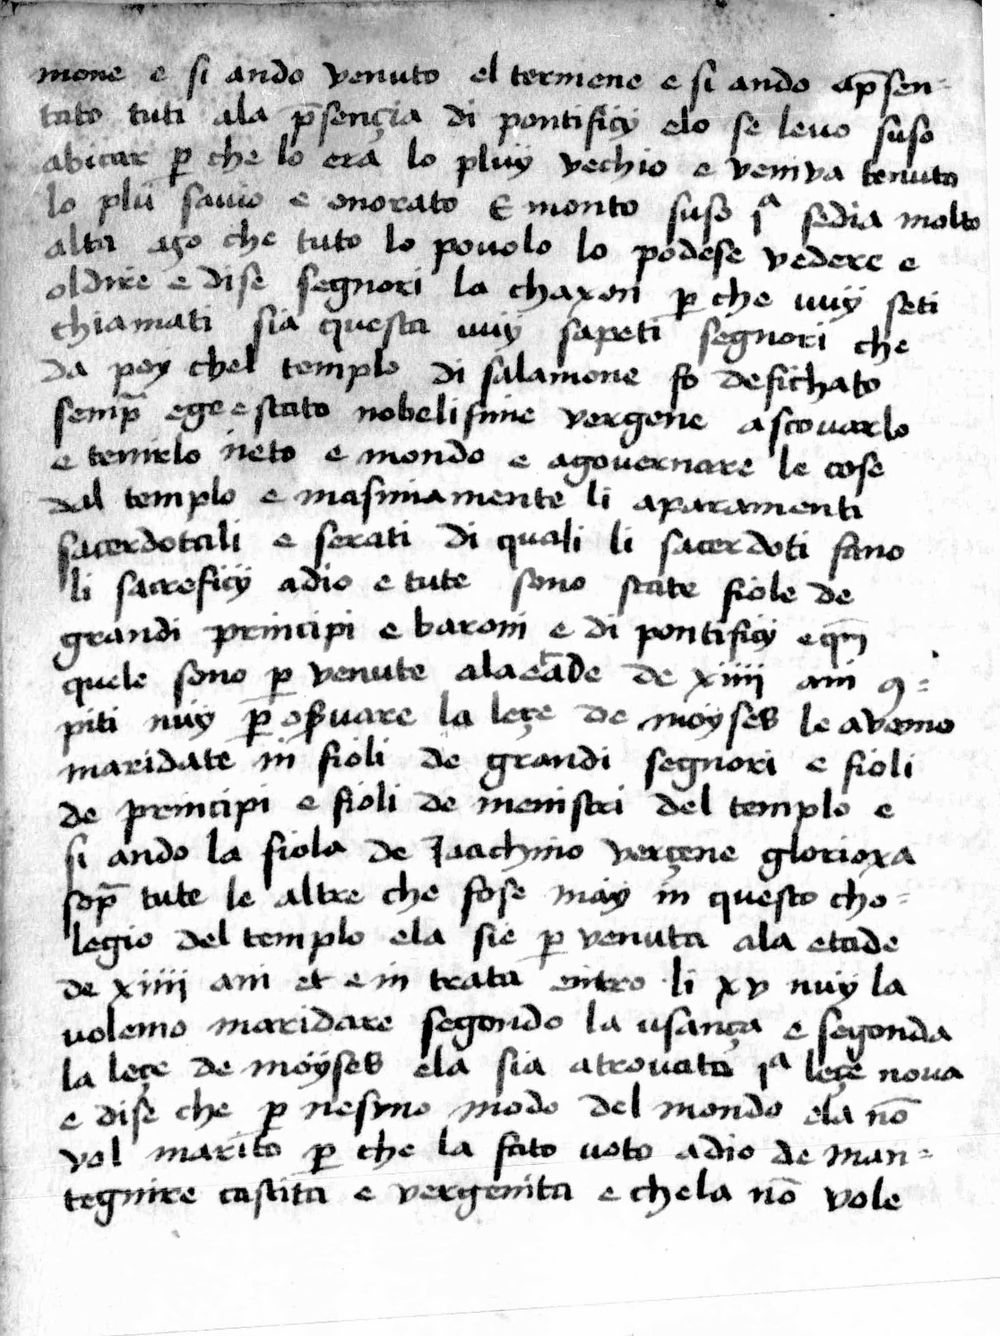 mone e si ando venuto el termene e si ando ap̄sen-
tato tuti ala p̄sençia di pontificÿ elo se levo suso
abiatar ꝑ che lo era lo pluÿ vechio e veniva tenuto
lo plu savio e onorato E monto suso jᵃ sedia molto
alta aço che tuto lo povolo lo podese vedere e
oldire e dise segnori la chaxon ꝑ che vuÿ seti
chiamati sia questa vuÿ sapeti segnori che
da poy chel templo di salamone fo defichato
semp̄ ege e stato nobelisime vergene a scovarlo
e tenirlo neto e mondo e agovernare le cose
dal templo e masimamente li aparamenti
sacerdotali e serati di quali li sacerdoti fano
li sacreficÿ adio e tute sono state fiole de
grandi principi e baroni e di pontificÿ e qn̄
quele sono ꝑ venute ala etade de xiiij ani ꝯ=
piti nuÿ ꝑ oßvare la leçe de moÿses le avemo
maridate in fioli de grandi segnori e fioli
de principi e fioli de menistri del templo e
si ando la fiola de Joachino verçene glorioxa
sop̄ tute le altre che fose may in questo cho=
legio del templo ela sie ꝑ venuta ala etade
de xiiij ani et e in trata entro li xv nuÿ la
volemo maridare segondo la usança e segonda
la leçe de moÿses ela sia atrovata jᵃ leçe nova
e dise che ꝑ nesuno modo del mondo ela nō
vol marito ꝑ che la fato voto adio de man=
tegnire castita e vergenita e chela nō vole